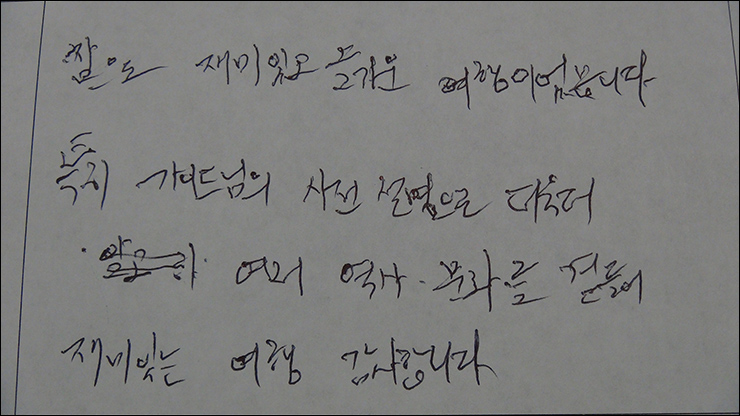 참으로 재미있고 즐거운 여행이었읍니다
특히 가이드님의 사전 설명으로 더욱더
여러 역사·문화를 곁들여
재미있는 여행 감사합니다